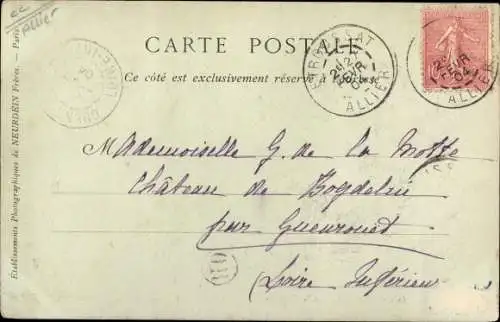 ce
Allier
CARTE POSTALE
Ce côté est exclusivement réservé à l'adresse
Etablissements Photographiques de NEURDEIN Frères. - Paris
FEVR
04
ALLIER
Mademoiselle G. de La Motte
Château de Bogdelin
par Guenrouet
Loire Inférieure